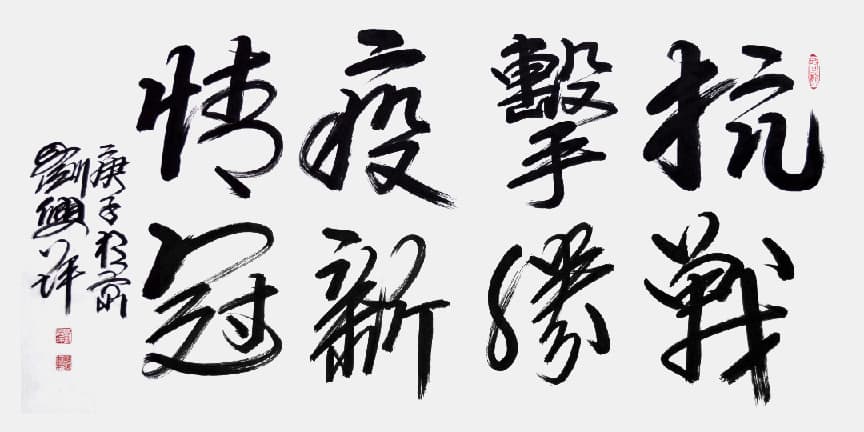 抗擊疫情
戰勝新冠
庚子
劉興祥